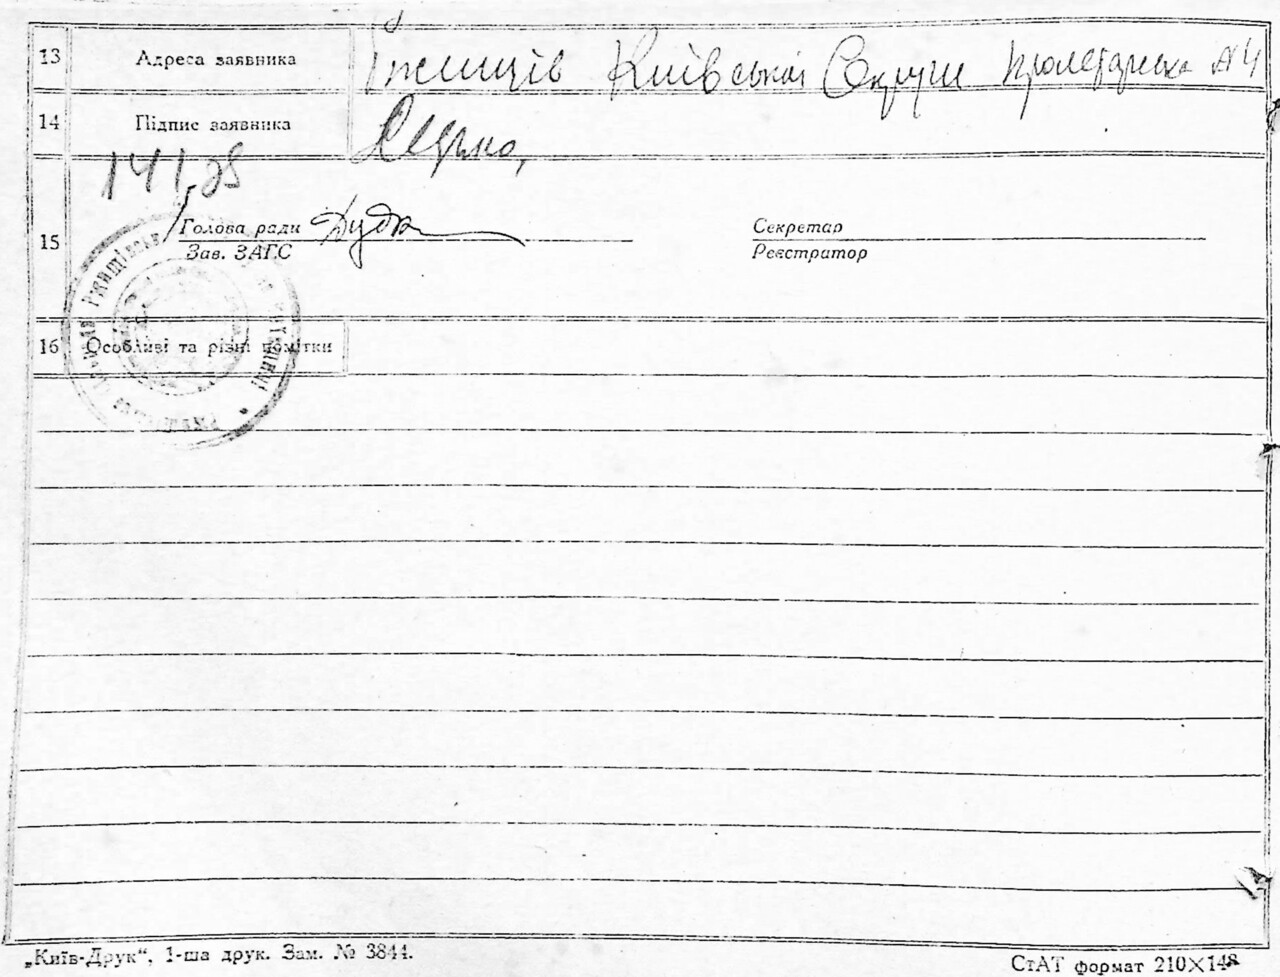 13 Адреса заявника Ржищів Київської Округи Пролетарська № 4
14 Підпис заявника
15 Голова ради Дудк Секретар
Зав. ЗАГС Реєстратор
16 Особливі та різні помітки
„Київ-Друк“, 1-ша друк. Зам. № 3844.
СтАТ формат 210×148